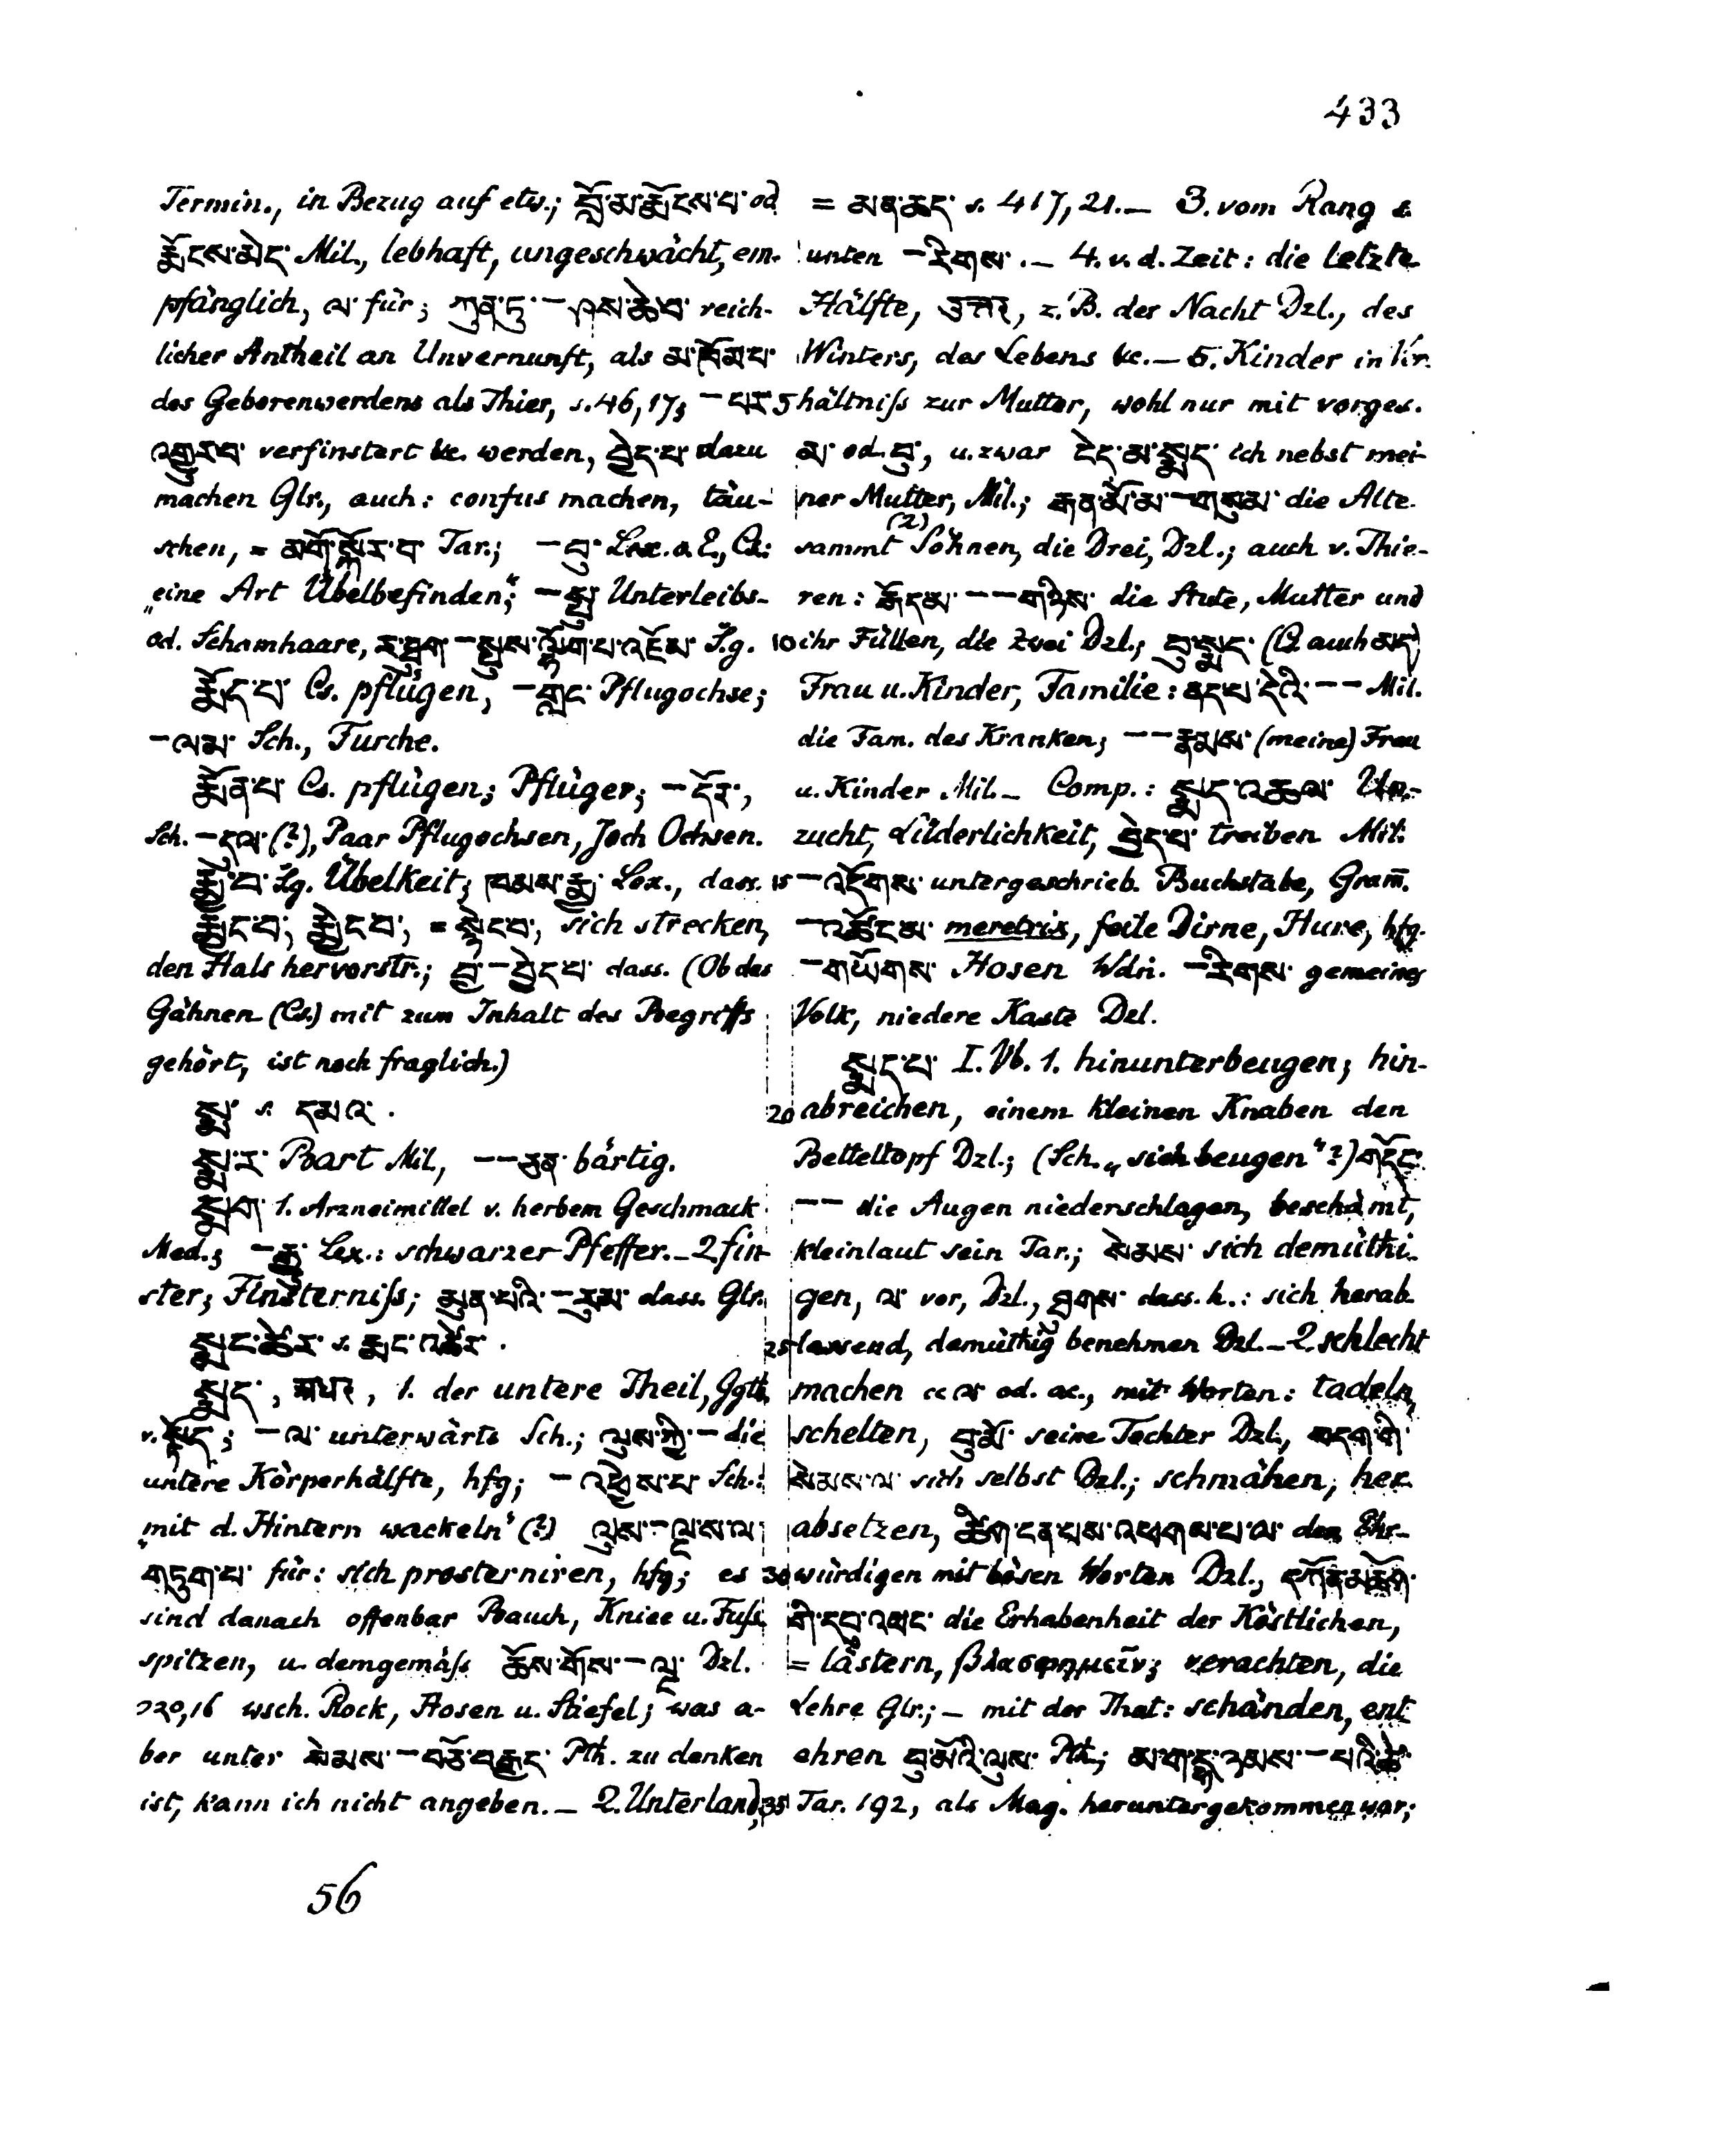 433
Termin., in Bezug auf etw.; བློ་མ་རྨོངས་པ་ od
རྨོངས་མེད་ Mil., lebhaft, ungeschwächt, em-
pfänglich, ལ་ für; ཀུན་ཏུ་ — ཤས་ཆེབ་ reich-
licher Antheil an Unvernunft, als མ་
des Geborenwerdens als Thier, s. 46,17; — པར
འགྱུརབ་ verfinstert &c. werden, བྱེད་པ་ dazu
machen Glr., auch: confus machen, täu-
schen, = མགོ་སྐོར་བ་ Tar.; — བུ་ Lex. a. E., Cs.:
„eine Art Übelbefinden“; — སྤུ་ Unterleibs-
od. Schamhaare, Lg.
རྨོད་པ་ Cs. pflügen, — གླང་ Pflugochse;
— ལམ་ Sch., Furche.
རྨོན་པ་ Cs. pflügen; Pflüger; — དོར་,
Sch. — དལ་ (?), Paar Pflugochsen, Joch Ochsen.
Lg. Übelkeit; Lex., dass.
རྨྱང་བ་, རྨྱེངབ་, = སྙེངབ་, sich strecken,
den Hals hervorstr.; བྱ་ — བྱེད་པ་ dass. (Ob das
Gähnen (Cs.) mit zum Inhalt des Begriffs
gehört, ist noch fraglich.)
སྨ་ s. དམའ་.
སྨ་ར་ Bart Mil, —— ཅན་ bärtig.
སྨག་ 1. Arzneimittel v. herbem Geschmack
Med.; — རྒྱུ་ Lex.: schwarzer Pfeffer. — 2. fin-
ster; Finsterniss; མུན་པའི་ — རུམ་ dass. Glr.
སྨང་ཚེར་ s. རྨང་འཚེར་.
སྨད་, अधर, 1. der untere Theil, Ggth
v. སྟོད་; — ལ་ unterwärts Sch.; ལུས་ཀྱི་ — die
untere Körperhälfte, hfg; — འཕྱེས་པ་ Sch.:
„mit d. Hintern wackeln“ (?) ལུས་ — ལྔ་ས་ལ་
གཏུག་པ་ für: sich prosterniren, hfg; es
sind danach offenbar Bauch, Kniee u. Fuss
spitzen, u. demgemäss ཆོས་གོས་ — ལྔ་ Dzl.
220,16 wsch. Rock, Hosen u. Stiefel; was a-
ber unter སེམས་ — བཅོ་བརྒྱད་ Pth. zu denken
ist, kann ich nicht angeben. — 2. Unterland,
= མན་ཆད་ s. 417, 21. — 3. vom Rang &
unten — རིགས་. — 4. v. d. Zeit: die letzte
Hälfte, उत्तर, z. B. der Nacht Dzl., des
Winters, des Lebens &c. — 5. Kinder in Vr.
5 hältniss zur Mutter, wohl nur mit vorges.
མ་ od. བུ་, u. zwar ངེད་མ་སྨད་ ich nebst mei-
ner Mutter, Mil.; རྒན་མོ་མ་ — གསུམ་ die Alte
sammt (2) Söhnen, die Drei, Dzl.; auch v. Thie-
ren: རྒོདམ་ —— གཉིས་ die Stute, Mutter und
10 ihr Füllen, die Zwei Dzl.; བུ་སྨད་ (Cs auch མད་)
Frau u. Kinder, Familie: ནདཔ་དེའི་ —— Mil.
die Fam. des Kranken; —— རྣམས་ (meine) Frau
u. Kinder Mil. — Comp.: སྨད་འཆལ་ Un-
zucht, Lüderlichkeit, བྱེད་པ་ treiben Mil.
15 — འདོགས་ untergeschrieb. Buchstabe, Gram̄.
— འཚོངམ་ meretrix, feile Dirne, Hure, hfg.
— གཡོགས་ Hosen Wdn. — རིགས་ gemeines
Volk, niedere Kaste Dzl.
སྨད་པ་ I. Vb. 1. hinunterbeugen; hin-
20 abreichen, einem kleinen Knaben den
Betteltopf Dzl.; (Sch. „sich beugen“?) གདོང་
—— die Augen niederschlagen, beschämt,
kleinlaut sein Tar.; སེམས་ sich demüthi-
gen, ལ་ vor, Dzl., ཐུགས་ dass. h.: sich herab
25 lassend, demüthig benehmen Dzl. — 2. schlecht
machen cc ལ་ od. ac., mit Worten: tadeln,
schelten, བུ་མོ་ seine Tochter Dzl., བདག་གི་
སེམས་ལ་ sich selbst Dzl.; schmähen, her-
absetzen, ཚིག་ངན་པས་འཕགས་པ་ལ་ den Ehr-
30 würdigen mit bösen Worten Dzl., དཀོན་མཆོག་
གི་དབུ་འཕང་ die Erhabenheit der Köstlichen,
= lästern, βλασφημεῖν; verachten, die
Lehre Glr.; — mit der That: schänden, ent
ehren བུ་མོའི་ལུས་ Pth; མ་ག་དྷ་ཉམས་ — པའི་ཚེ་
35 Tar. 192, als Mag. heruntergekommen war;
56